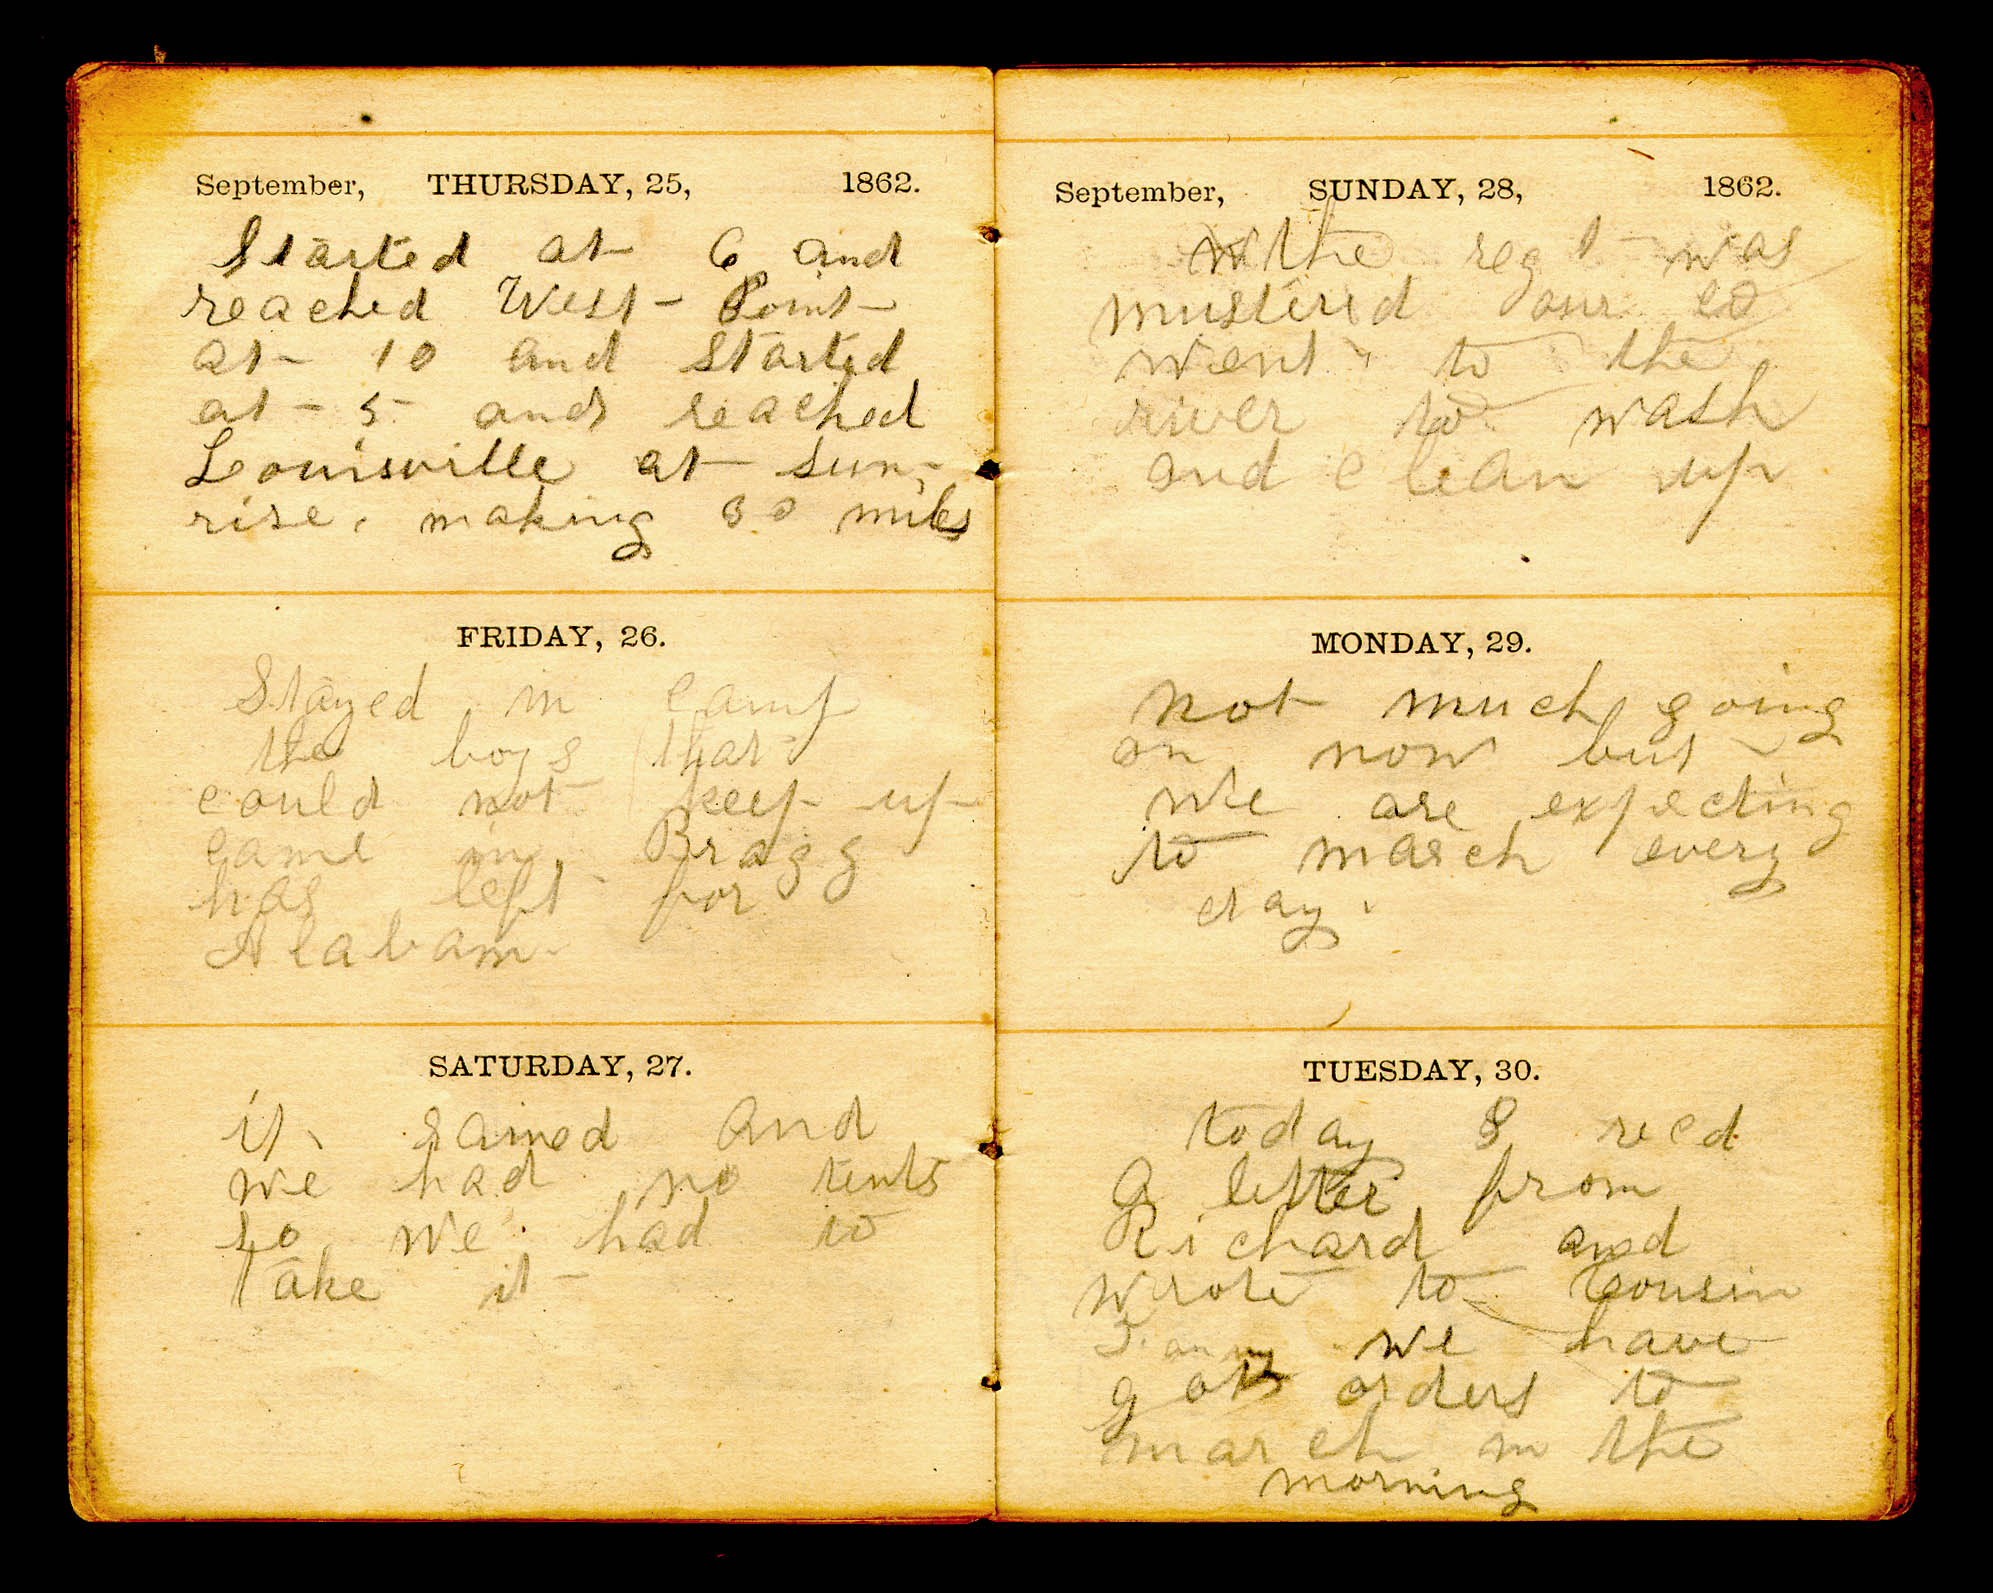 September, THURSDAY, 25, 1862.
Started at 6 and
reached West Point
at 10 and started
at 5 and reached
Louisville at sun-
rise, making 30 miles
FRIDAY, 26.
Stayed in camp
the boys that
could not keep up
came in. Bragg
has left for
Alabam
SATURDAY, 27.
it rained and
we had no tents
so we had to
take it
September, SUNDAY, 28, 1862.
the regt was
mustered our co
went to the
river to wash
and clean up
MONDAY, 29.
not much going
on now but
we are expecting
to march every
day.
TUESDAY, 30.
today I recd
a letter from
Richard and
wrote to Cousin
we have
got orders to
march in the
morning